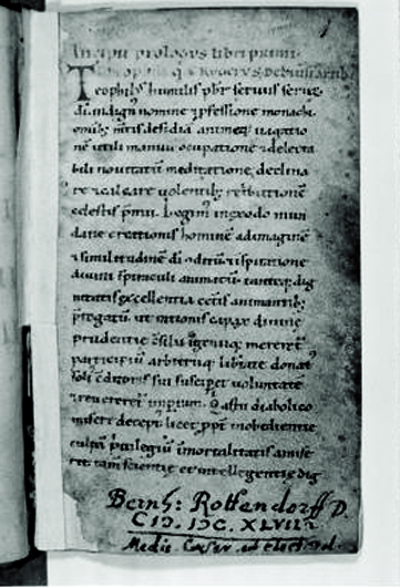 Incipit prologus libri primi
Teophil' humilis p̄br seruus seruoꝝ
di. indign' nomine ⁊ p̱fessione monachi.
omnib; m̄tis desidiā animiq; uagatio
nē utili manuū occupatione ⁊ delecta
bili nouitatū meditatione, declina
re ⁊ calcare uolentib; ret̄butionē
celestis p̄mii. Legim' in exordio mun
dane creationis hominē ad imaginē
⁊ similitudinē di c̄ditū ⁊ inspiratione
diuini spiraculi animatū. tanteq; dig
nitatis excellentia cet̄is animantib;
p̄rogatū. ut rationis capax diuine
prudentie c̄silii ingeniiq; mereret̉
participiū arbitriiq; libtate donat'
soli' c̄ditoris sui suscip̱et uoluntatē
⁊ reuereret̉ imp̱ium. Q̇ astu diabolico
misere decept' licet ꝓpt̄ inobedientie
culpā p̄uilegiū īmortalitatis amise
rit. tam̄ scientie et intellegentie dig
Bernh: Rottendorff D.
CIↃ. IↃC. XLVIII